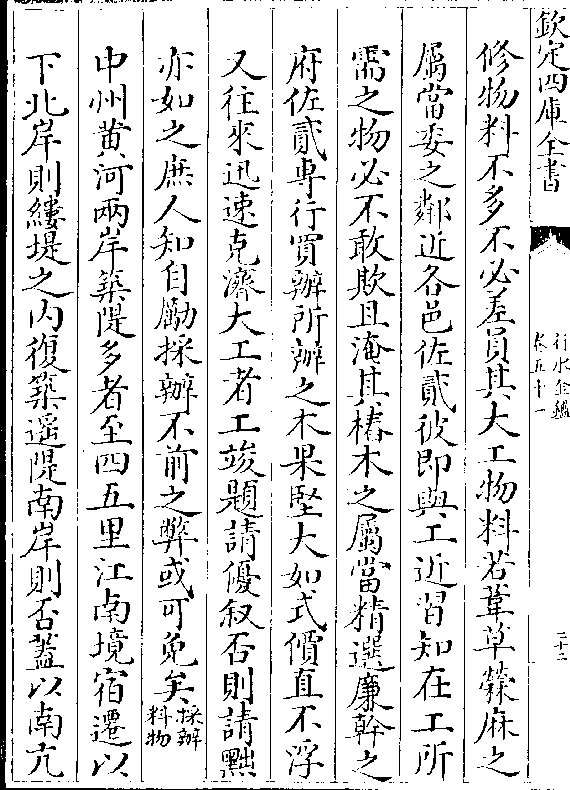 欽定四庫全書
行水金鑑
卷五十一
二十二
修物料不多不必差員其大工物料若葦草檾麻之
屬當委之鄰近各邑佐貳彼即與工近習知在工所
需之物必不敢欺且淹其樁木之屬當精選廉幹之
府佐貳專行買辦所辦之木果堅大如式價直不浮
又往來迅速克濟大工者工竣題請優叙否則請黜
亦如之庶人知自勵採辦不前之弊或可免矣採辦料物
中州黄河兩岸築隄多者至四五里江南境宿遷以
下北岸則縷堤之内復築遥隄南岸則否蓋以南亢